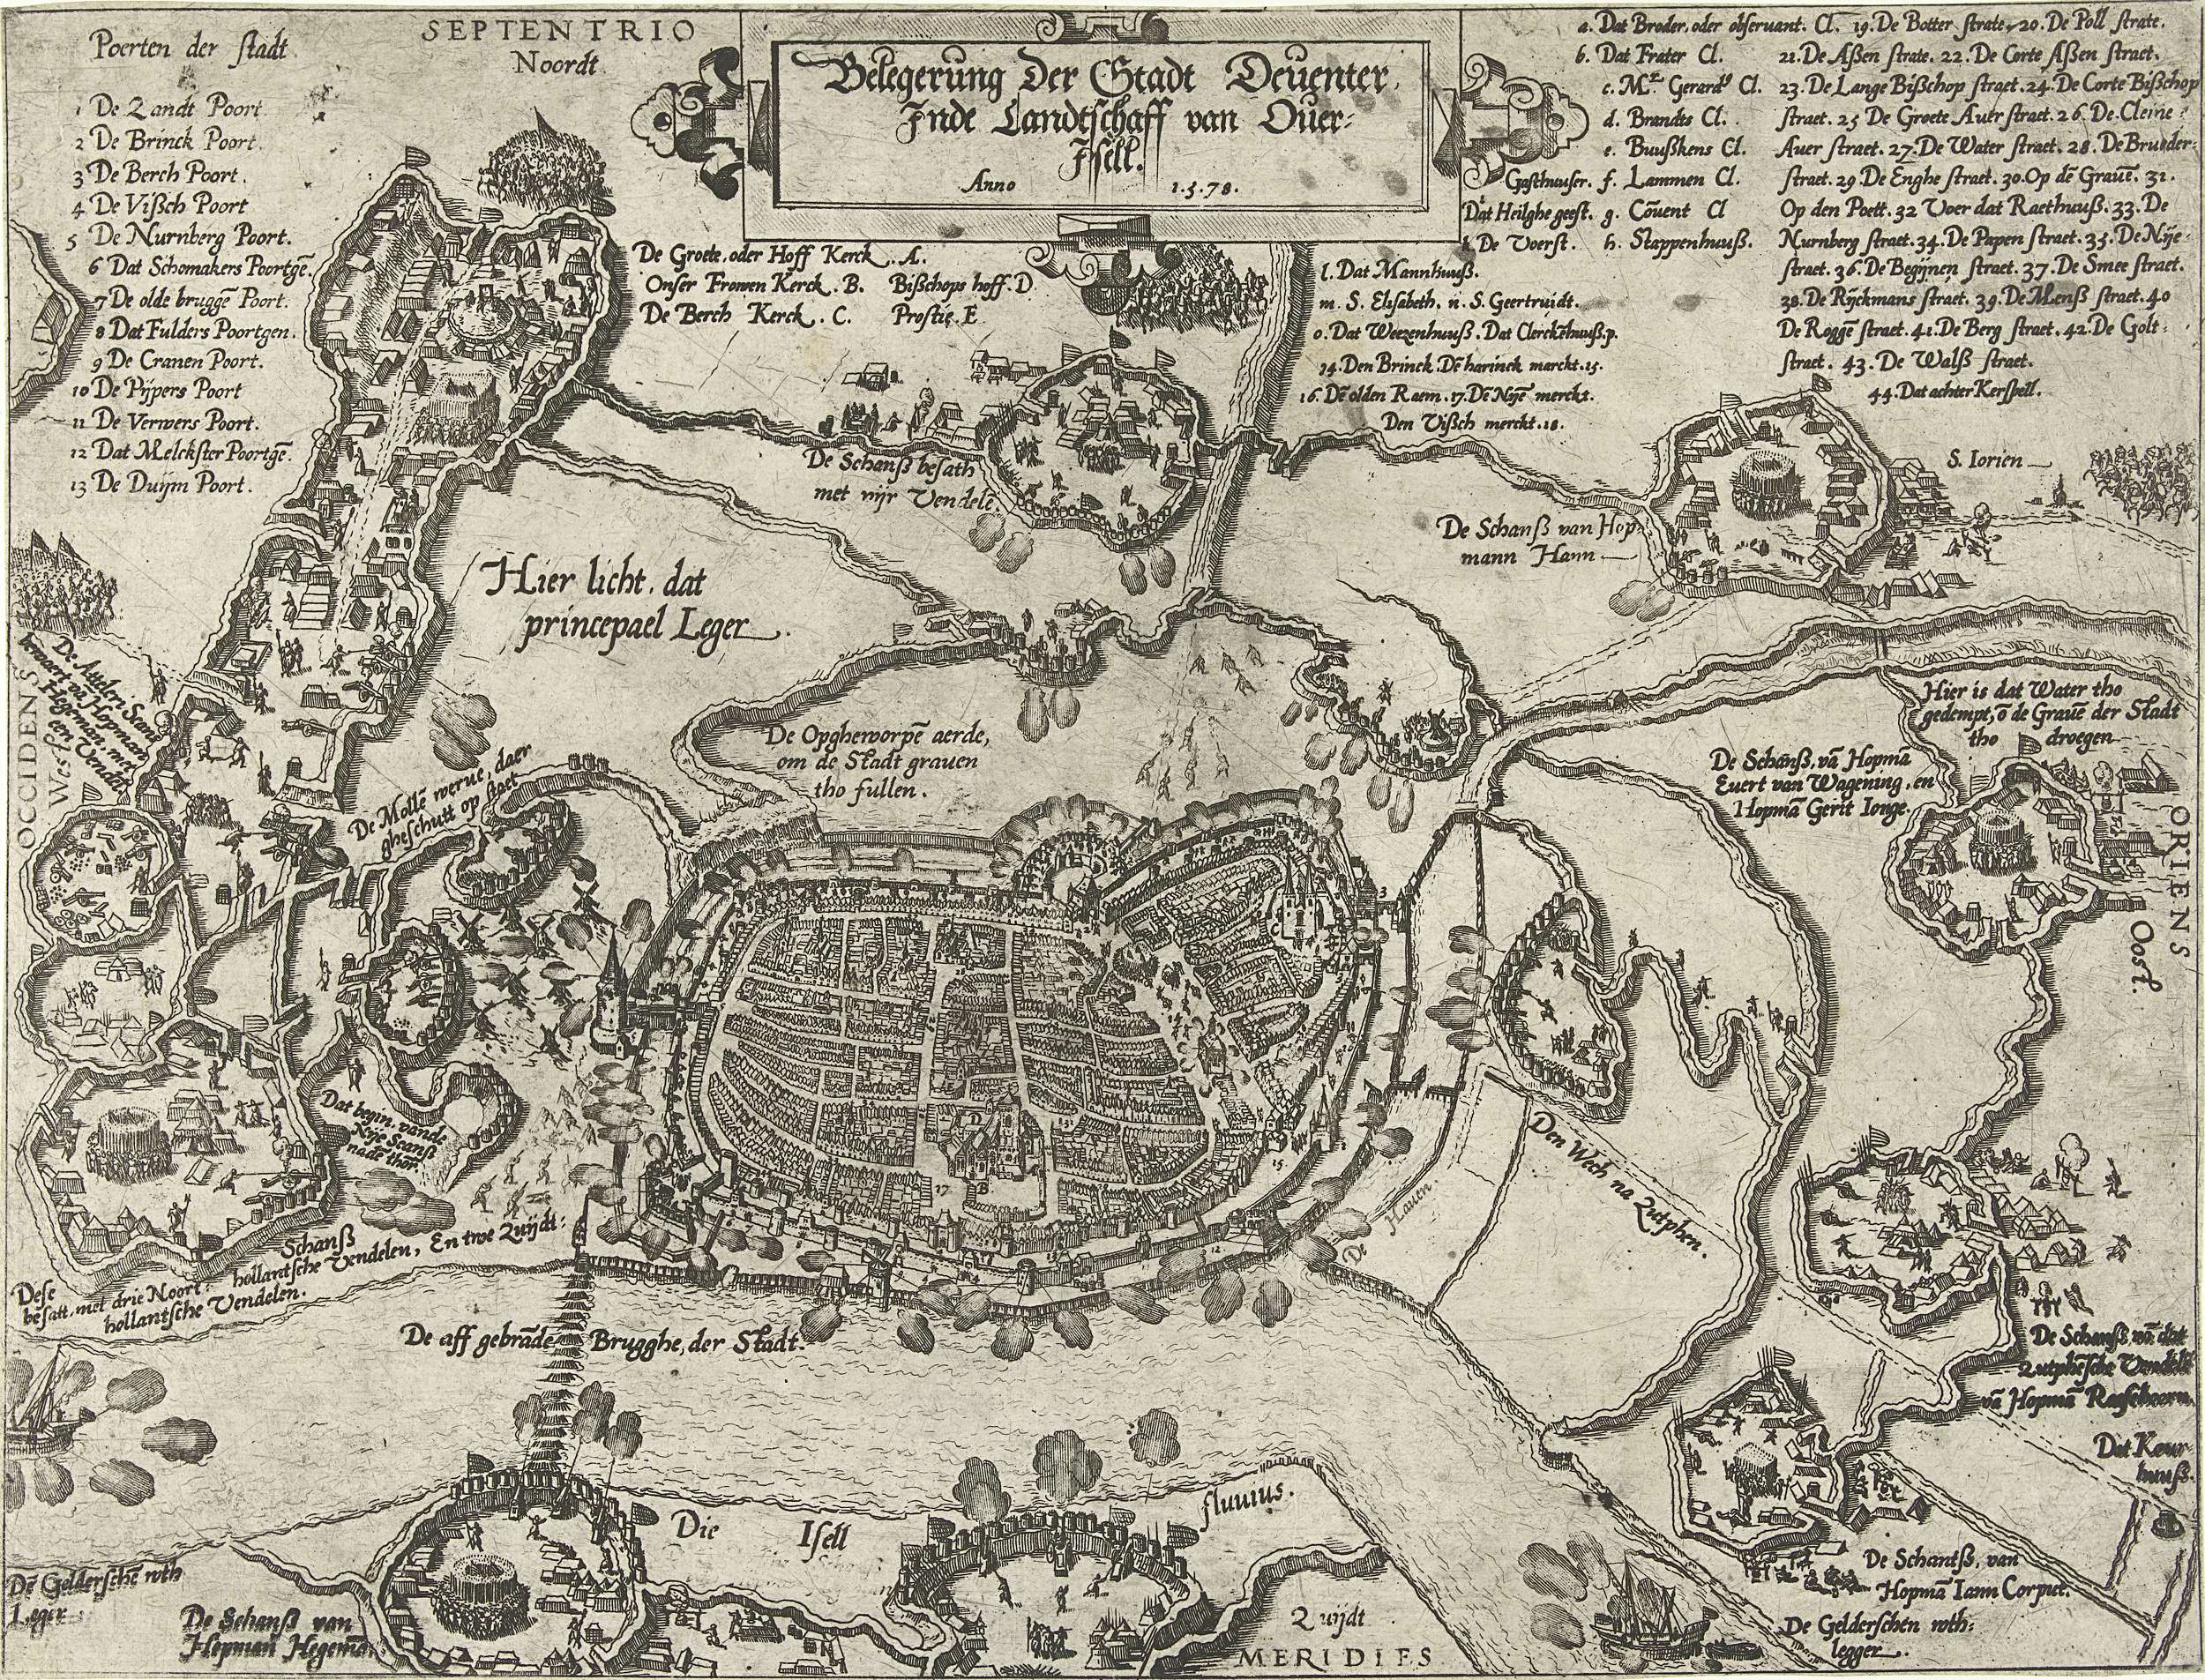 SEPTENTRIO
Noordt
Belegerung Der Stadt Deuenter,
Inde Landtschaff van Ouer-
Isell.
Anno 1.5.78.
Poerten der stadt
1 De Zandt Poort
2 De Brinck Poort.
3 De Berch Poort.
4 De Vißch Poort
5 De Nurnberg Poort.
6 Dat Schomakers Poortgē.
7 De olde bruggē Poort.
8 Dat Fulders Poortgen.
9 De Cranen Poort.
10 De Pijpers Poort
11 De Verwers Poort.
12 Dat Melckster Poortgē.
13 De Duijm Poort.
De Groete, oder Hoff Kerck. A.
Onser Frowen Kerck. B. Bißchops hoff. D
De Berch Kerck. C. Prostie. E
a. Dat Broder, oder obseruant. Cl.
b. Dat Frater Cl.
c. Mr. Gerards Cl.
d. Brandts Cl.
e. Buußkens Cl.
Gasthuuser. f. Lammen Cl.
Dat Heilghe geest. g. Cōuent Cl
k De Voerst. h. Stappenhuuß.
l. Dat Mannhuuß.
m. S. Elisabeth. n. S. Geertruidt.
o. Dat Weezenhuuß. Dat Clerckēhuuß. p.
14. Den Brinck. Dē harinck marckt. 15.
16. Dē olden Raem. 17. Dē Nijē merckt.
Den Vißch merckt. 18.
19. De Botter strate, 20. De Poll strate.
21. De Aßen strate. 22. De Corte Aßen straet.
23. De Lange Bißchop straet. 24. De Corte Bißchop
straet. 25 De Groete Auer straet. 26. De Cleine
Auer straet. 27. De Water straet. 28. De Bruder-
straet. 29. De Enghe straet. 30. Op dē Grauē. 31.
Op den Poett. 32 Voer dat Raethuuß. 33. De
Nurnberg straet. 34. De Papen straet. 35. De Nije-
straet. 36. De Begijnen straet. 37. De Smee straet.
38. De Rijckmans straet. 39. De Menß straet. 40
De Roggē straet. 41. De Berg straet. 42. De Golt-
straet. 43. De Walß straet.
44. Dat achter Kerspell.
De Schanß besath
met vijr Vendelē.
S. Iorien
De Schanß van Hop
mann Hann
Hier licht, dat
princepael Leger
OCCIDENS
West
De Opgheworpē aerde,
om de Stadt grauen
tho fullen.
Hier is dat Water tho
gedempt, ō de Grauē der Stadt
tho droegen
De Schanß, vā Hopmā
Euert van Wagening, en
Hopmā Gerit Ionge.
ORIENS
Oost.
De Mollē werue, daer
gheschutt op staet
Dat begin, vande
Nije Scanß
nade thor.
Den Wech na Zutphen.
De Hauen
Schanß
hollantsche Vendelen, En twe Zuijdt:
Dese
besatt, met drie Noort-
hollantsche Vendelen.
De aff gebrāde Brugghe, der Stadt.
De Schanß vā dat
Zutphēsche Vendelē
vā Hopmā
Die Isell fluuius.
De Schantß, van
Hopmā Iann Corput.
De Gelderschen
legger
Dē Gelderschē
Leger
De Schanß van
Hopman Hegemā
Zuijdt
MERIDIES